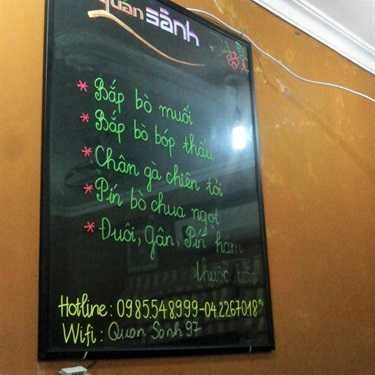 Quán SÀNH
* Bắp bò muối
* Bắp bò bóp thấu
* Chân gà chiên tỏi
* Pín bò chua ngọt
* Đuôi, Gân, Pín hầm
thuốc bắc
Hotline: 0985.548.999-04.2267018
Wifi: Quan Sanh 97